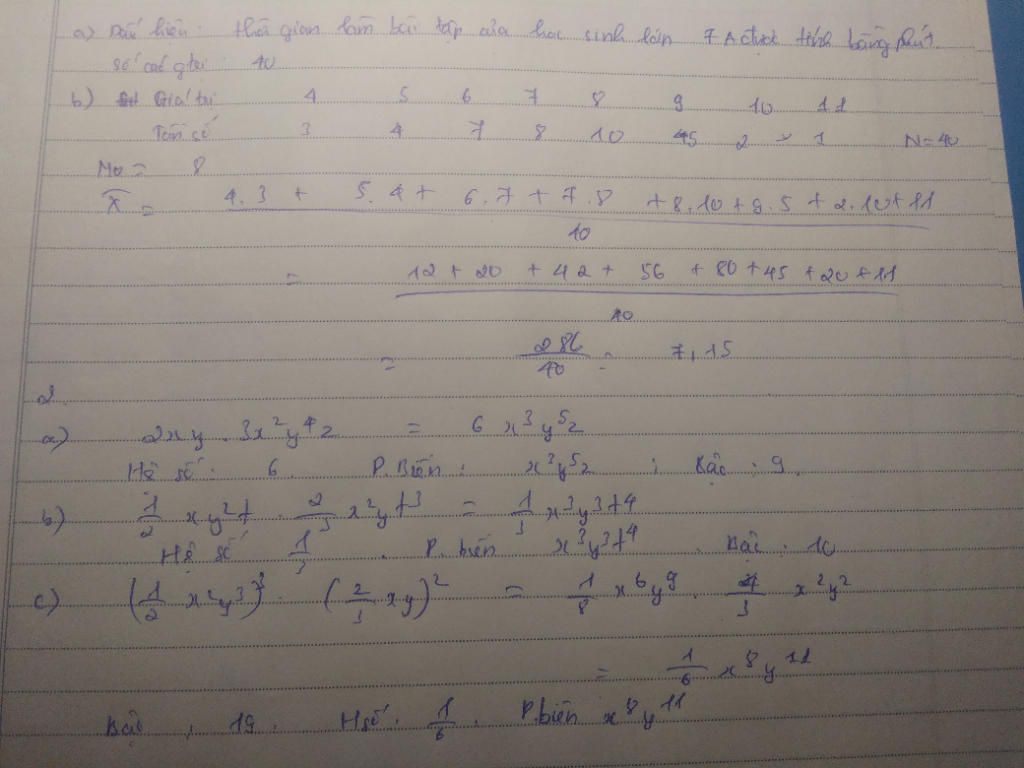 a) Dấu hiệu: thời gian làm bài tập của học sinh lớp 7A được tính bằng phút.
số các gtrị: 40
b) Giá trị 4 5 6 7 8 9 10 11
Tần số 3 4 7 8 10 5 2 1 N=40
Mo = 8
X̄ = (4.3 + 5.4 + 6.7 + 7.8 + 8.10 + 9.5 + 2.10 + 11)/40
= (12 + 20 + 42 + 56 + 80 + 45 + 20 + 11)/40
= 286/40 = 7,15
2.
a) 2xy . 3x²y⁴z = 6 x³y⁵z
Hệ số: 6. P.Biến: x³y⁵z ; Bậc: 9.
b) 1/2 xy²t . 2/3 x²yt³ = 1/3 x³y³t⁴
Hệ số 1/3. P. biến x³y³t⁴. Bậc: 10
c) (1/2 x²y³)³ . (2/3 xy)² = 1/8 x⁶y⁹ . 4/3 x²y²
= 1/6 x⁸y¹¹
Bậc: 19. Hsố: 1/6. P.biến x⁸y¹¹